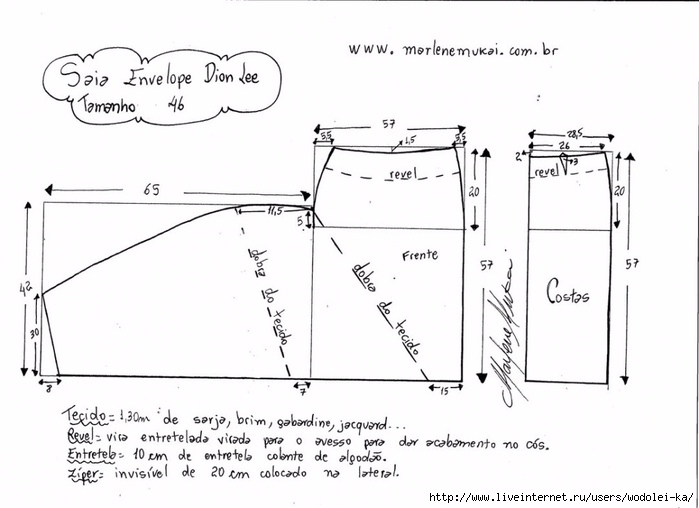 www.marlenemukai.com.br
Saia Envelope Dion Lee
Tamanho 46
57
5,5
1,5
3,5
revel
20
28,5
26
2
3
revel
20
65
11,5
5
42
30
8
7
15
57
57
dobra do tecido
dobra do tecido
Frente
Costas
Marlene Mukai
Tecido= 1,30m de sarja, brim, gabardine, jacquard...
Revel= vira entretelada virada para o avesso para dar acabamento no cós.
Entretela= 10 cm de entretela colante de algodão.
Zíper= invisível de 20 cm colocado na lateral.
http://www.liveinternet.ru/users/wodolei-ka/